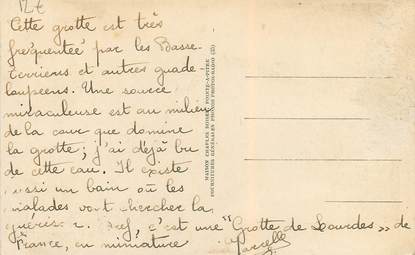 12€
Cette grotte est très
fréquenteé par les Basse-
Terriens et autres guade-
loupéens. Une source
miraculeuse est au milieu
de la cour que domine
la grotte; j'ai déjà bu
de cette eau. Il existe
ussi un bain où les
malades vont chercher la
guéris Bref, c'est une "Grotte de Lourdes" de
France, en miniature
MAISON CHARLES BOISEL POINTE-A-PITRE
FOURNITURES GÉNÉRALES PHOTOS PHONOS RADIO